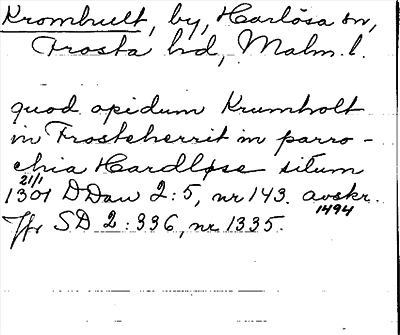 Kromhult, by, Harlösa sn,
Frosta hd, Malm. l.
quod opidum Krumholt
in Frosteherrit in parro-
chia Hardløse situm
21/1
1301 DDan 2:5, nr 143. avskr.
1494
Jfr SD 2:336, nr 1335.